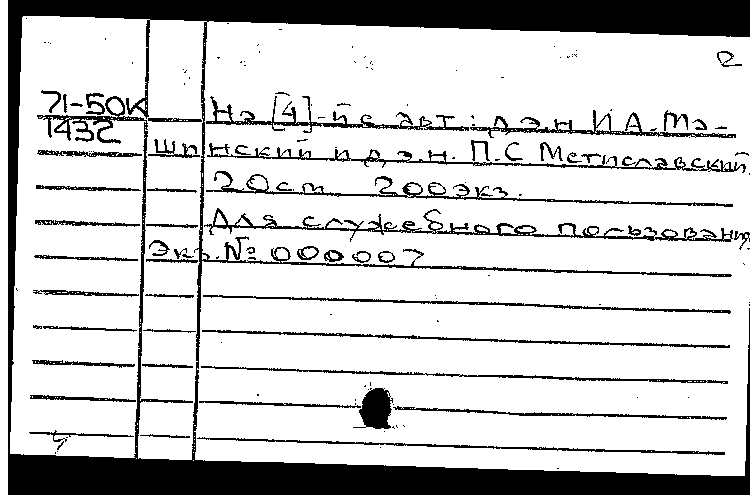 2
71-50К
1432
На [4]-й с авт: д.э.н И А. Ма-
шинский и д.э.н. П.С Мстиславский.
20 см 200 экз.
Для служебного пользования
Экз. № 000007